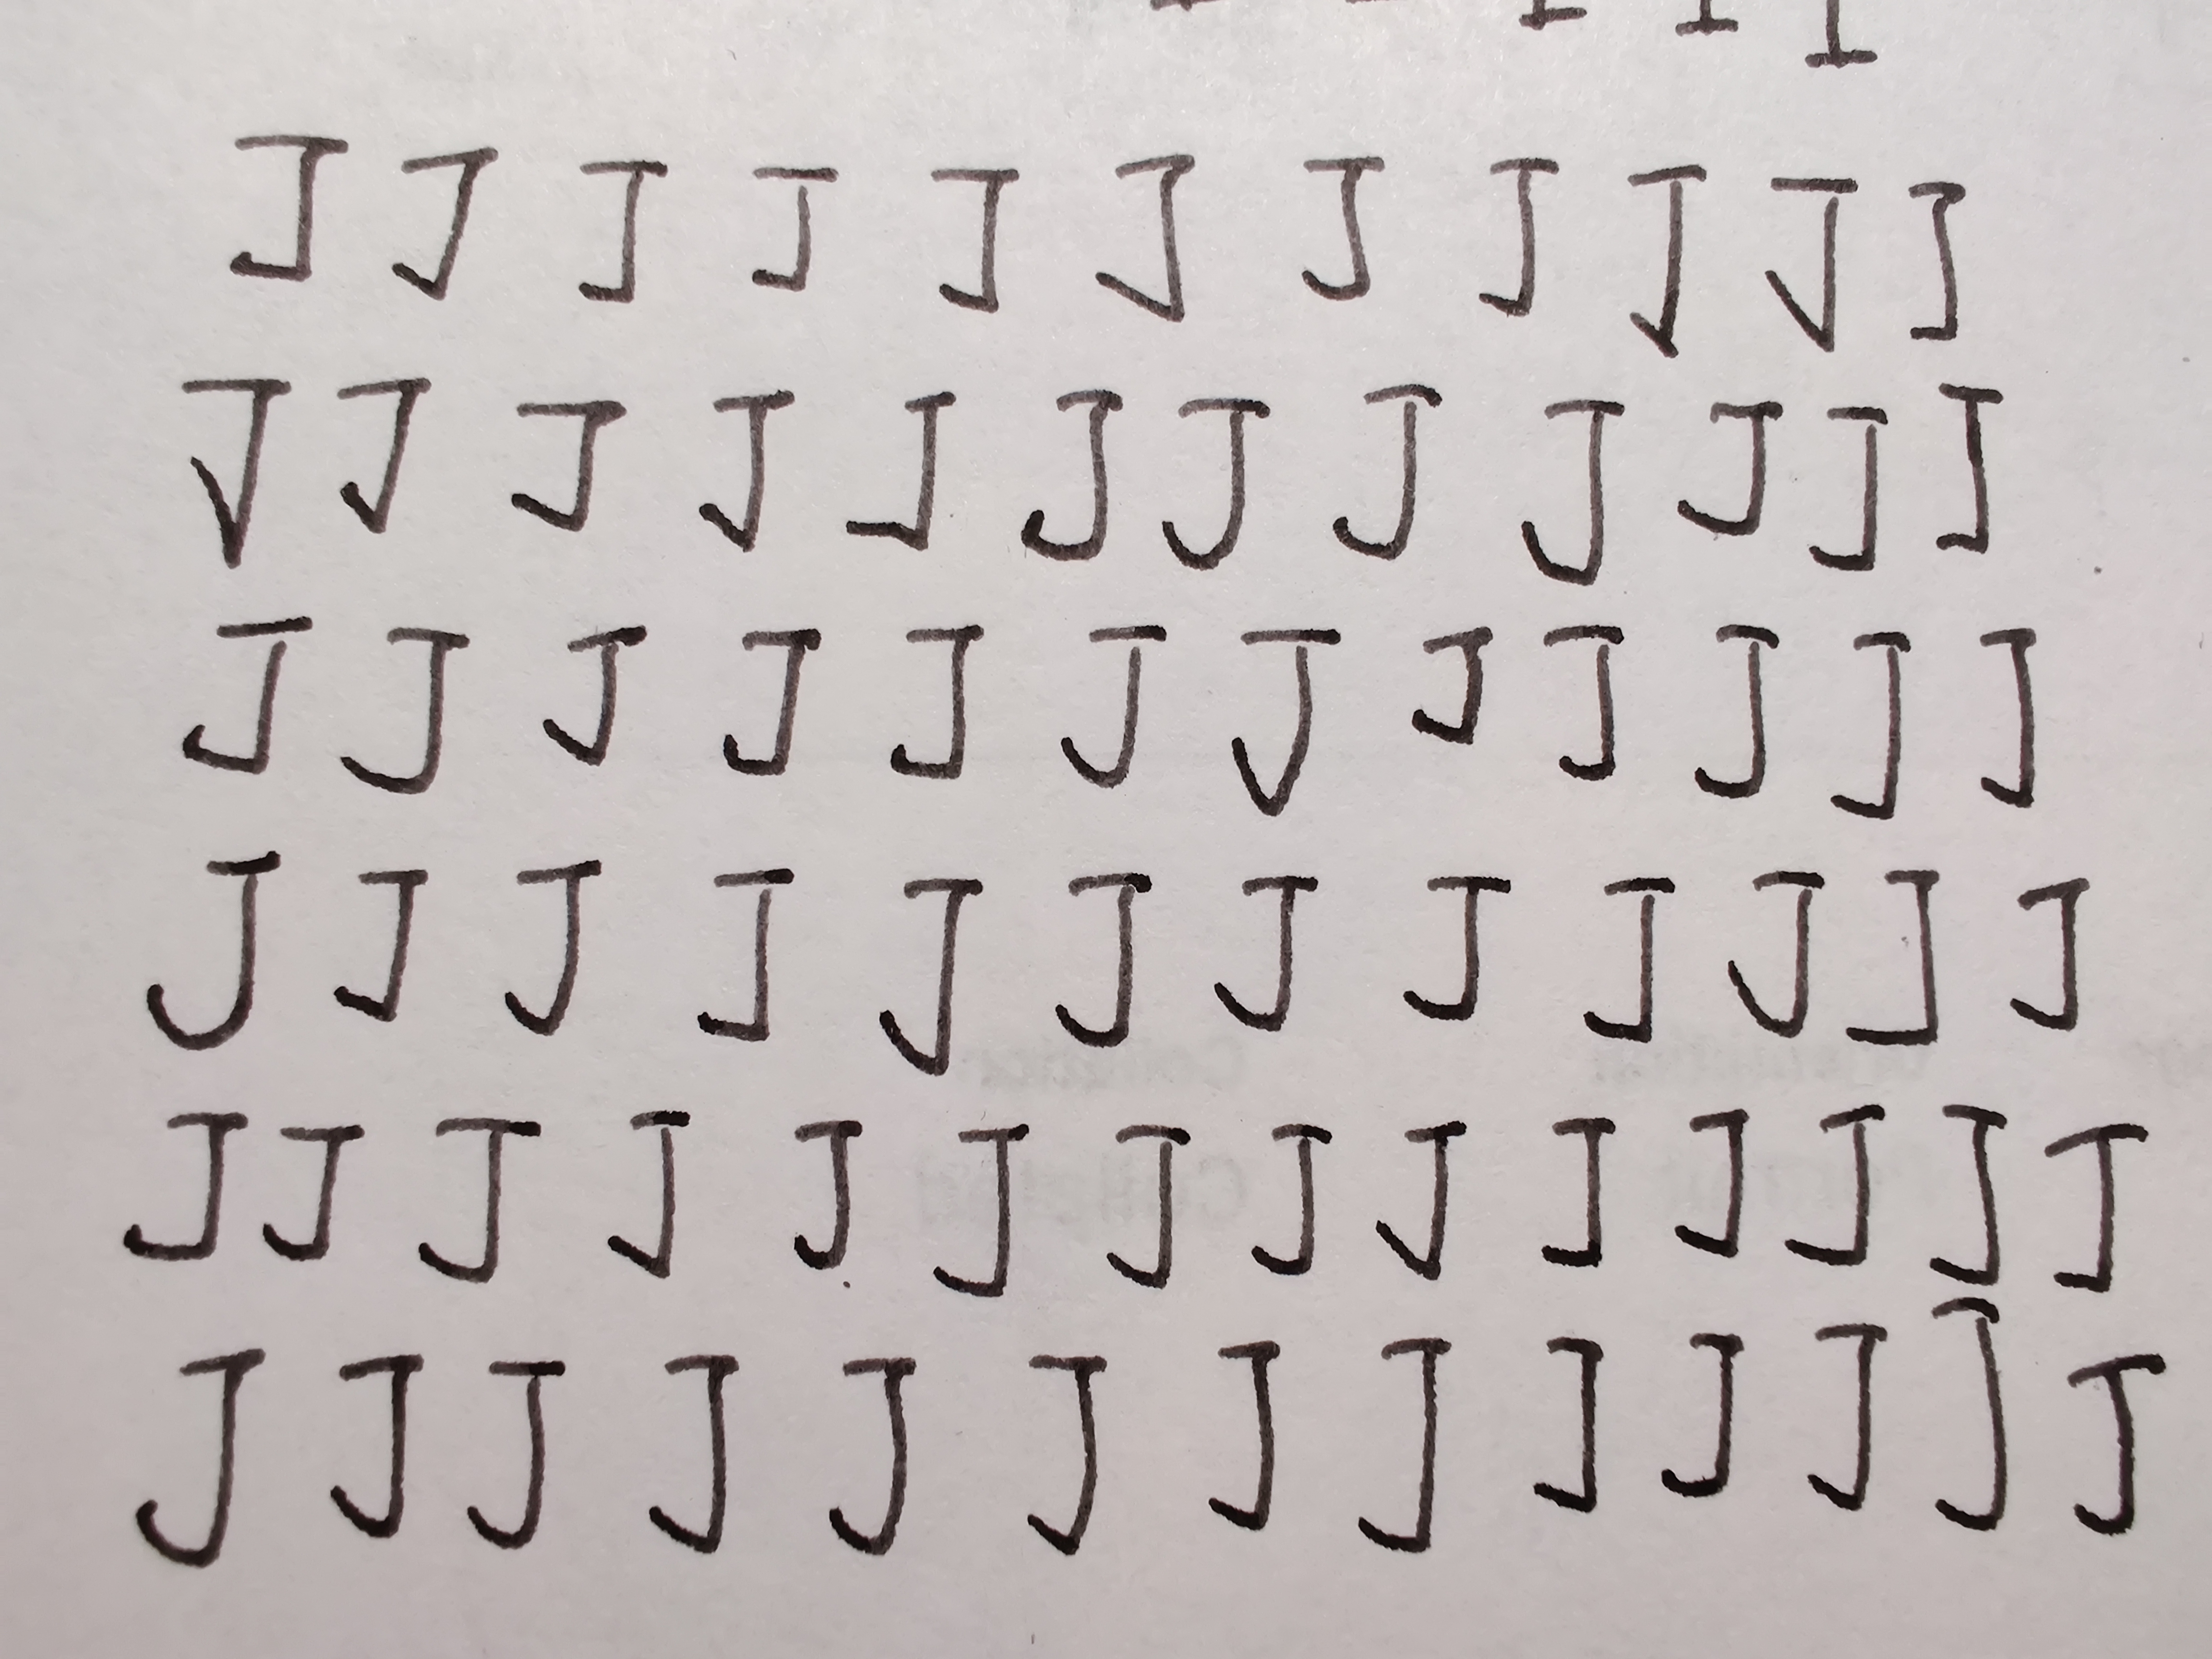 I I I I I
J J J J J J J J J J J
J J J J J J J J J J J J
J J J J J J J J J J J J
J J J J J J J J J J J J
J J J J J J J J J J J J J J
J J J J J J J J J J J J J